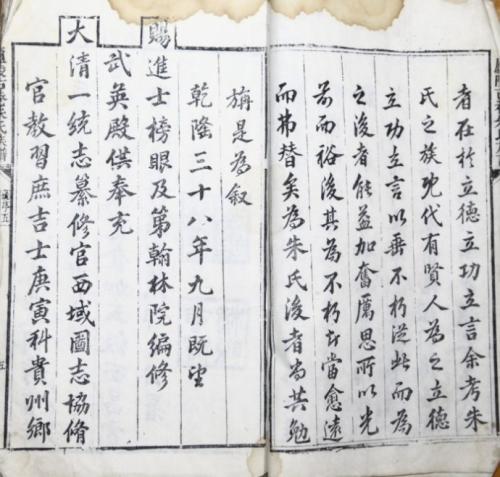 者在於立德立功立言余考朱
氏之族先代有賢人為之立德
立功立言以垂不朽從此而為
之後者能益加奮厲思所以光
前而裕後其為不朽者當愈遠
而弗替矣為朱氏後者尚其勉
旃是為叙
乾隆三十八年九月既望
賜進士榜眼及第翰林院編修
武英殿供奉充
大清一統志纂修官西域圖志協脩
官教習庶吉士庚寅科貴州鄉